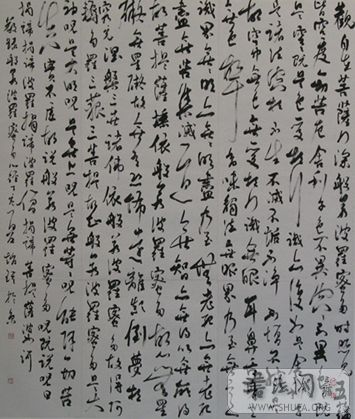 觀自在菩薩行深般若波羅蜜多時照見五蘊
皆空度一切苦厄舍利子色不異空空不異色色即
是空空即是色受想行識亦復如是舍利子
是諸法空相不生不滅不垢不淨不增不減是
故空中無色無受想行識無眼耳鼻舌身
意無色聲香味觸法無眼界乃至無意
識界無無明亦無無明盡乃至無老死亦無老
死盡無苦集滅道無智亦無得以無所得
故菩提薩埵依般若波羅蜜多故心無罣
礙無罣礙故無有恐怖遠離顛倒夢想
究竟涅槃三世諸佛依般若波羅蜜多故得阿
耨多羅三藐三菩提故知般若波羅蜜多是大
神咒是大明咒是無上咒是無等等咒能除一切苦
真實不虛故說般若波羅蜜多咒即說咒曰
揭諦揭諦波羅揭諦波羅僧揭諦菩提薩婆訶
般若波羅蜜多心經
書法网
WWW.SHUFA.ORG